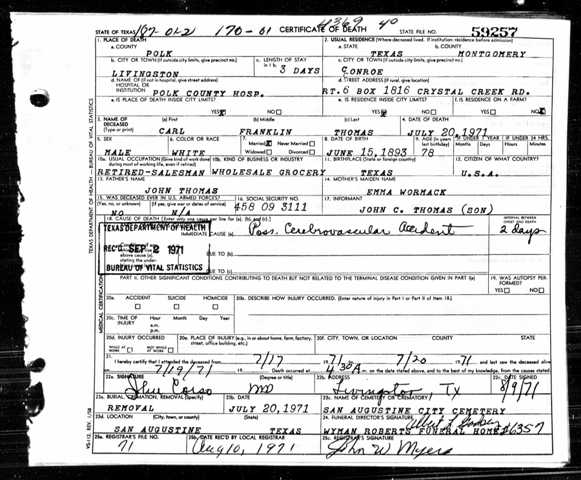 STATE OF TEXAS 107 01-2 170-01 CERTIFICATE OF DEATH 4369 40 STATE FILE NO. 59257
1. PLACE OF DEATH 2. USUAL RESIDENCE (Where deceased lived. If institution: residence before admission)
a. COUNTY POLK a. STATE TEXAS b. COUNTY MONTGOMERY
b. CITY OR TOWN (If outside city limits, give precinct no.) c. LENGTH OF STAY c. CITY OR TOWN (If outside city limits, give precinct no.)
LIVINGSTON 3 DAYS CONROE
d. NAME OF (If not in hospital, give street address) HOSPITAL OR INSTITUTION d. STREET ADDRESS (If rural, give location)
POLK COUNTY HOSP. RT. 6 BOX 1816 CRYSTAL CREEK RD.
e. IS PLACE OF DEATH INSIDE CITY LIMITS? e. IS RESIDENCE INSIDE CITY LIMITS? f. IS RESIDENCE ON A FARM?
YES NO YES NO YES NO
3. NAME OF DECEASED (Type or print) (a) First (b) Middle (c) Last 4. DATE OF DEATH
CARL FRANKLIN THOMAS JULY 20, 1971
5. SEX 6. COLOR OR RACE 7. Married Never Married Widowed Divorced 8. DATE OF BIRTH 9. AGE (In years last birthday) IF UNDER 1 YEAR IF UNDER 24 HRS.
Months Days Hours Minutes
MALE WHITE JUNE 15, 1893 78
10a. USUAL OCCUPATION (Give kind of work done during most of working life, even if retired) 10b. KIND OF BUSINESS OR INDUSTRY 11. BIRTHPLACE (State or foreign country) 12. CITIZEN OF WHAT COUNTRY?
RETIRED-SALESMAN WHOLESALE GROCERY TEXAS U.S.A.
13. FATHER'S NAME 14. MOTHER'S MAIDEN NAME
JOHN THOMAS EMMA WORMACK
15. WAS DECEASED EVER IN U.S. ARMED FORCES? 16. SOCIAL SECURITY NO. 17. INFORMANT
(Yes, no, or unknown) (If yes, give war or dates of service)
NO N/A 458 09 3111 JOHN C. THOMAS (SON)
18. CAUSE OF DEATH (Enter only one cause per line for (a), (b), and (c).) INTERVAL BETWEEN ONSET AND DEATH
TEXAS DEPARTMENT OF HEALTH
IMMEDIATE CAUSE (a) Poss. Cerebrovascular Accident 2 days
REC'D SEP 2 1971 DUE TO (b)
above cause (a) stating the under-
BUREAU OF VITAL STATISTICS DUE TO (c)
PART II. OTHER SIGNIFICANT CONDITIONS CONTRIBUTING TO DEATH BUT NOT RELATED TO THE TERMINAL DISEASE CONDITION GIVEN IN PART I(a) 19. WAS AUTOPSY PERFORMED?
YES NO
20a. ACCIDENT SUICIDE HOMICIDE 20b. DESCRIBE HOW INJURY OCCURRED. (Enter nature of injury in Part I or Part II of item 18.)
20c. TIME OF INJURY Hour Month Day Year
a.m.
p.m.
20d. INJURY OCCURRED 20e. PLACE OF INJURY (e.g., in or about home, farm, factory, street, office building, etc.) 20f. CITY, TOWN, OR LOCATION COUNTY STATE
WHILE AT WORK NOT WHILE AT WORK
21. I hereby certify that I attended the deceased from 7/17 1971 to 7/20 1971 and last saw the deceased alive
on 7/19/71 Death occurred at 4:30 A m. on the date stated above, and to the best of my knowledge, from the causes stated.
22a. SIGNATURE (Degree or title) 22b. ADDRESS 22c. DATE SIGNED
MD Livingston TX 8/9/71
23a. BURIAL, CREMATION, REMOVAL (Specify) 23b. DATE 23c. NAME OF CEMETERY OR CREMATORY
REMOVAL JULY 20, 1971 SAN AUGUSTINE CITY CEMETERY
23d. LOCATION (City, town, or county) (State) 24. FUNERAL DIRECTOR'S SIGNATURE
SAN AUGUSTINE TEXAS WYMAN ROBERTS FUNERAL HOME #6357
25a. REGISTRAR'S FILE NO. 25b. DATE REC'D BY LOCAL REGISTRAR 25c. REGISTRAR'S SIGNATURE
71 Aug 10, 1971 John W Myers
TEXAS DEPARTMENT OF HEALTH - BUREAU OF VITAL STATISTICS
MEDICAL CERTIFICATION
VS-112 REV. 1/58